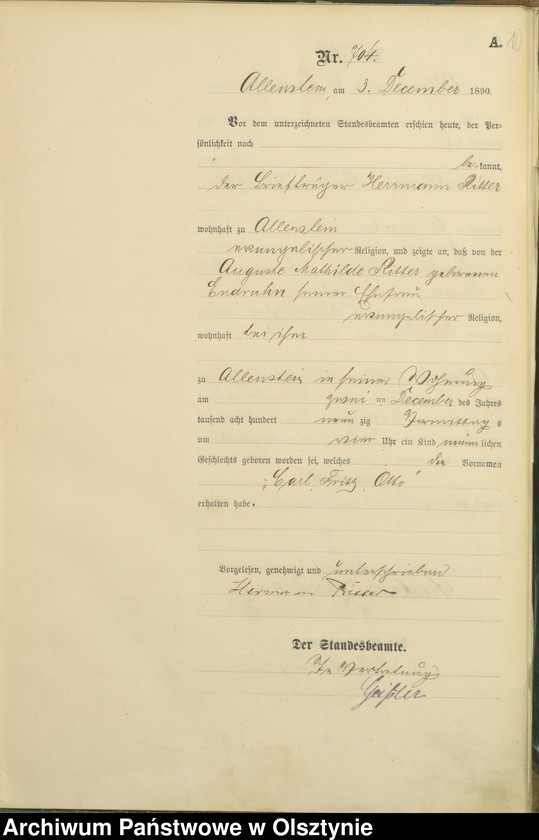 A. 10
Nr. 704.
Allenstein, am 3. December 1890.
Vor dem unterzeichneten Standesbeamten erschien heute, der Per-
sönlichkeit nach
be-kannt,
der Briefträger Herrmann Ritter
wohnhaft zu Allenstein
evangelischer Religion, und zeigte an, daß von der
Auguste Mathilde Ritter geborenen
Endruhn seiner Ehefrau
evangelischer Religion,
wohnhaft bei ihm
zu Allenstein in seiner Wohnung
am zwei ten December des Jahres
tausend acht hundert neun zig Vormittags
um vier Uhr ein Kind männlichen
Geschlechts geboren worden sei, welches die Vornamen
„Carl Fritz Otto"
erhalten habe.
Vorgelesen, genehmigt und unterschrieben
Hermann Ritter
Der Standesbeamte.
In Vertretung
Archiwum Państwowe w Olsztynie